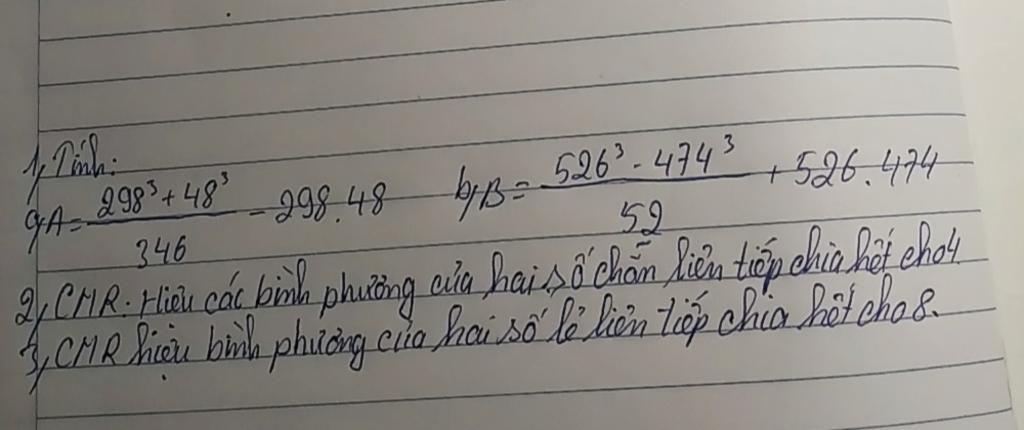 1, Tính:
a, A = \frac{298³ + 48³}{346} - 298.48 b, B = \frac{526³ - 474³}{52} + 526.474
2, CMR: Hiệu các bình phương của hai số chẵn liên tiếp chia hết cho 4
3, CMR hiệu bình phương của hai số lẻ liên tiếp chia hết cho 8.